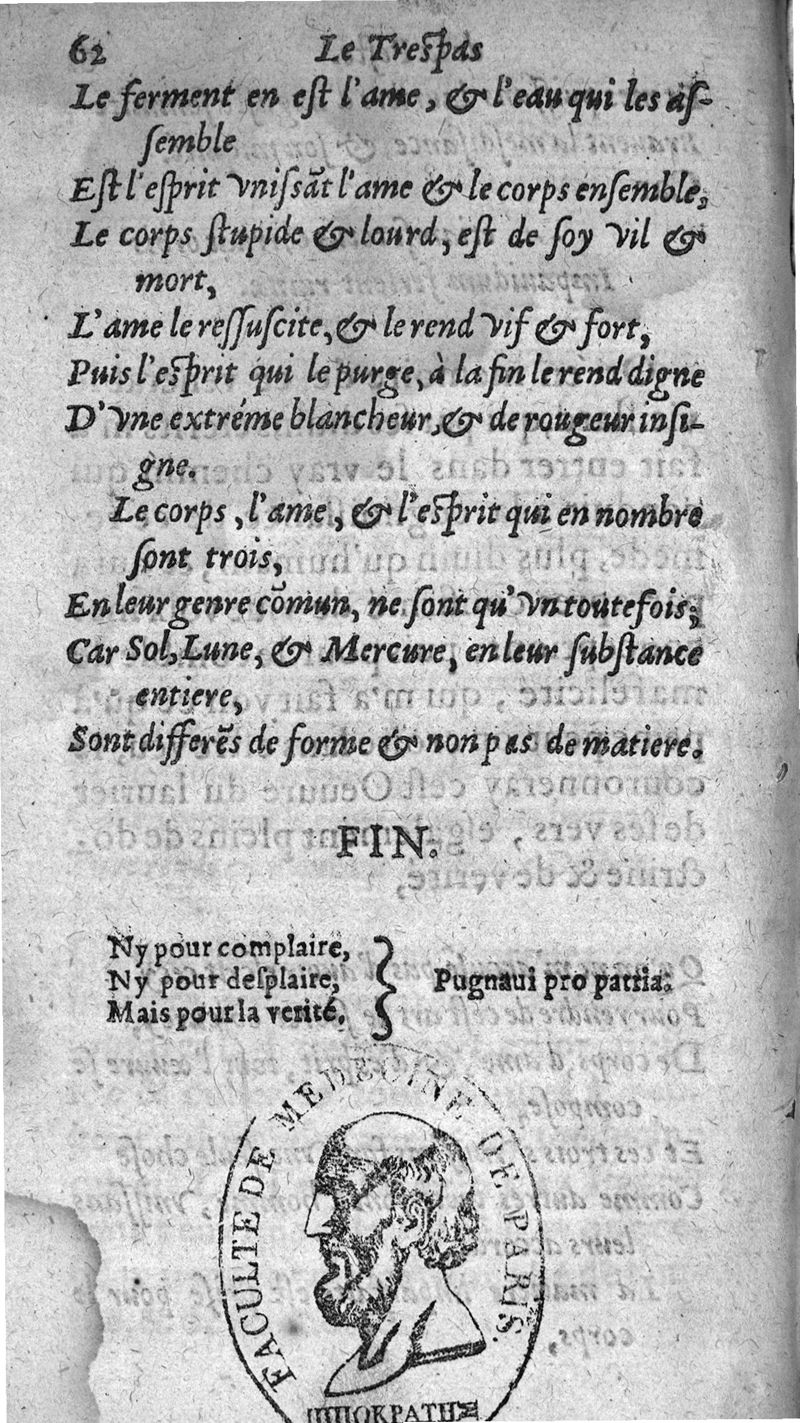 62 Le Treſpas
Le ferment en eſt l'ame, & l'eau qui les aſ-
ſemble
Eſt l'eſprit vniſsãt l'ame & le corps enſemble,
Le corps ſtupide & lourd, eſt de ſoy vil &
mort,
L'ame le reſſuſcite, & le rend vif & fort,
Puis l'eſprit qui le purge, à la fin le rend digne
D'vne extréme blancheur, & de rougeur inſi-
gne.
Le corps, l'ame, & l'eſprit qui en nombre
ſont trois,
En leur genre cõmun, ne ſont qu'vn toutefois;
Car Sol, Lune, & Mercure, en leur ſubſtance
entiere,
Sont differẽs de forme & non pas de matiere.
FIN.
Ny pour complaire,
Ny pour deſplaire,
Mais pour la verité.
Pugnaui pro patria.
FACULTE DE MEDECINE DE PARIS.
ΙΠΠΟΚΡΑΤΗΣ